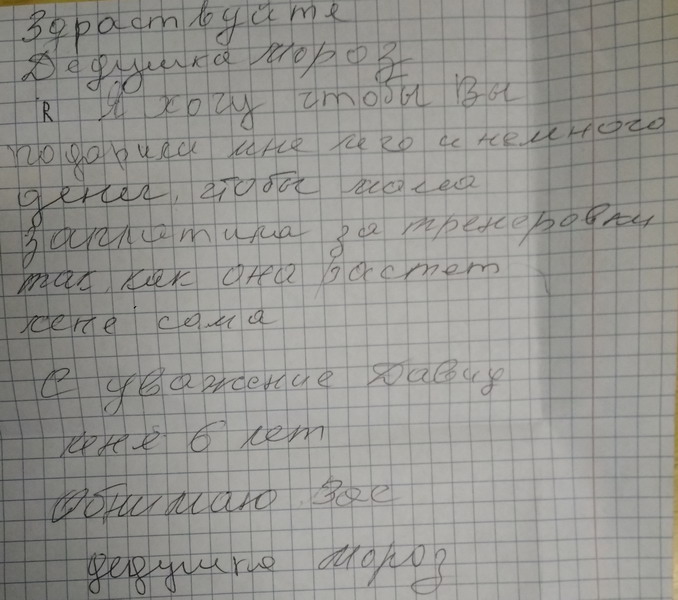 Здраствуйте
Дедушка мороз
R Я хочу чтобы Вы
подарили мне лего и немного
денег, чтобы мама
заплатила за тренеровки
так как она растет
мене сама
С уважение Давид
мене 6 лет
Обнимаю Вас
дедушка мороз